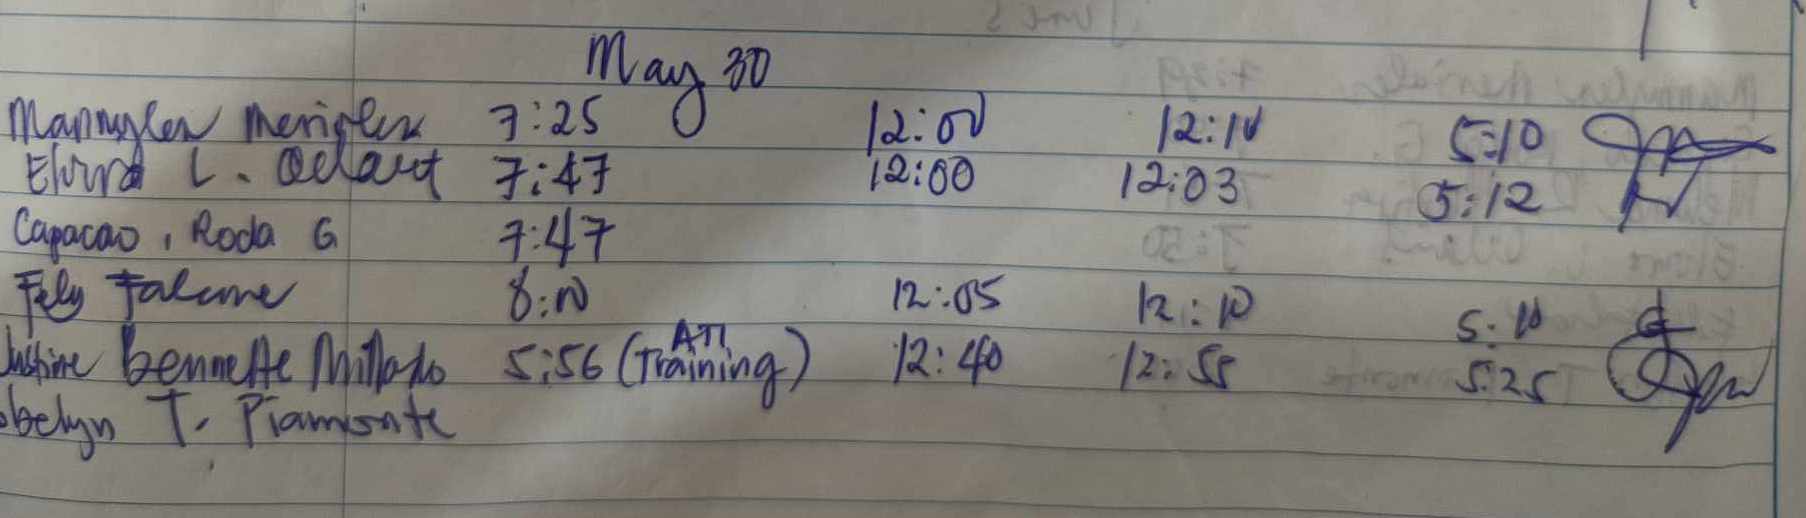 May 30
7:25 12:00 12:10 5:10
L. 7:47 12:00 12:03 5:12
Capacao, Roda G. 7:47
Fely Falcone 8:10 12:05 12:10 5:10
Justine Bennette Millado 5:56 (ATI Training) 12:40 12:55 5:25
obelyn T. Piamonte